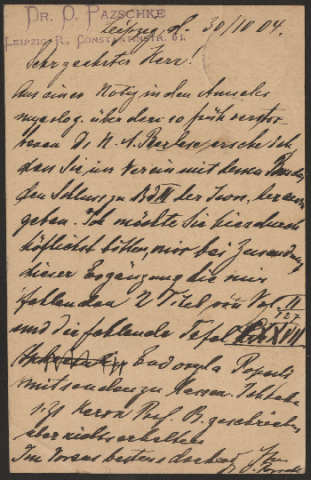 DR. O. PAZSCHKE
LEIPZIG-R., CONSTANTINSTR. 61.
Leipzig, d. 30/10 04.
Sehr geehrter Herr!
Aus einer Notiz in den Annales
mycolog. über den so früh verstor
benen Dr. A. N. Berlese ersehe ich,
dass Sie im Verein mit dessen Bruder
den Schluss zu Bd III der Icon. heraus
geben. Ich möchte Sie hierdurch
höflichst bitten, mir bei Zusendung
dieser Ergänzung die mir
fehlenden 2 Titel von Vol. II
und die fehlende Tafel
Endoxyla Populi
mitsenden zu lassen. Ich habe
s. Zt Herrn Prof. B. geschrieben
aber nichts erhalten
Im Voraus bestens dankend Ihr
Dr. O. Pazschke